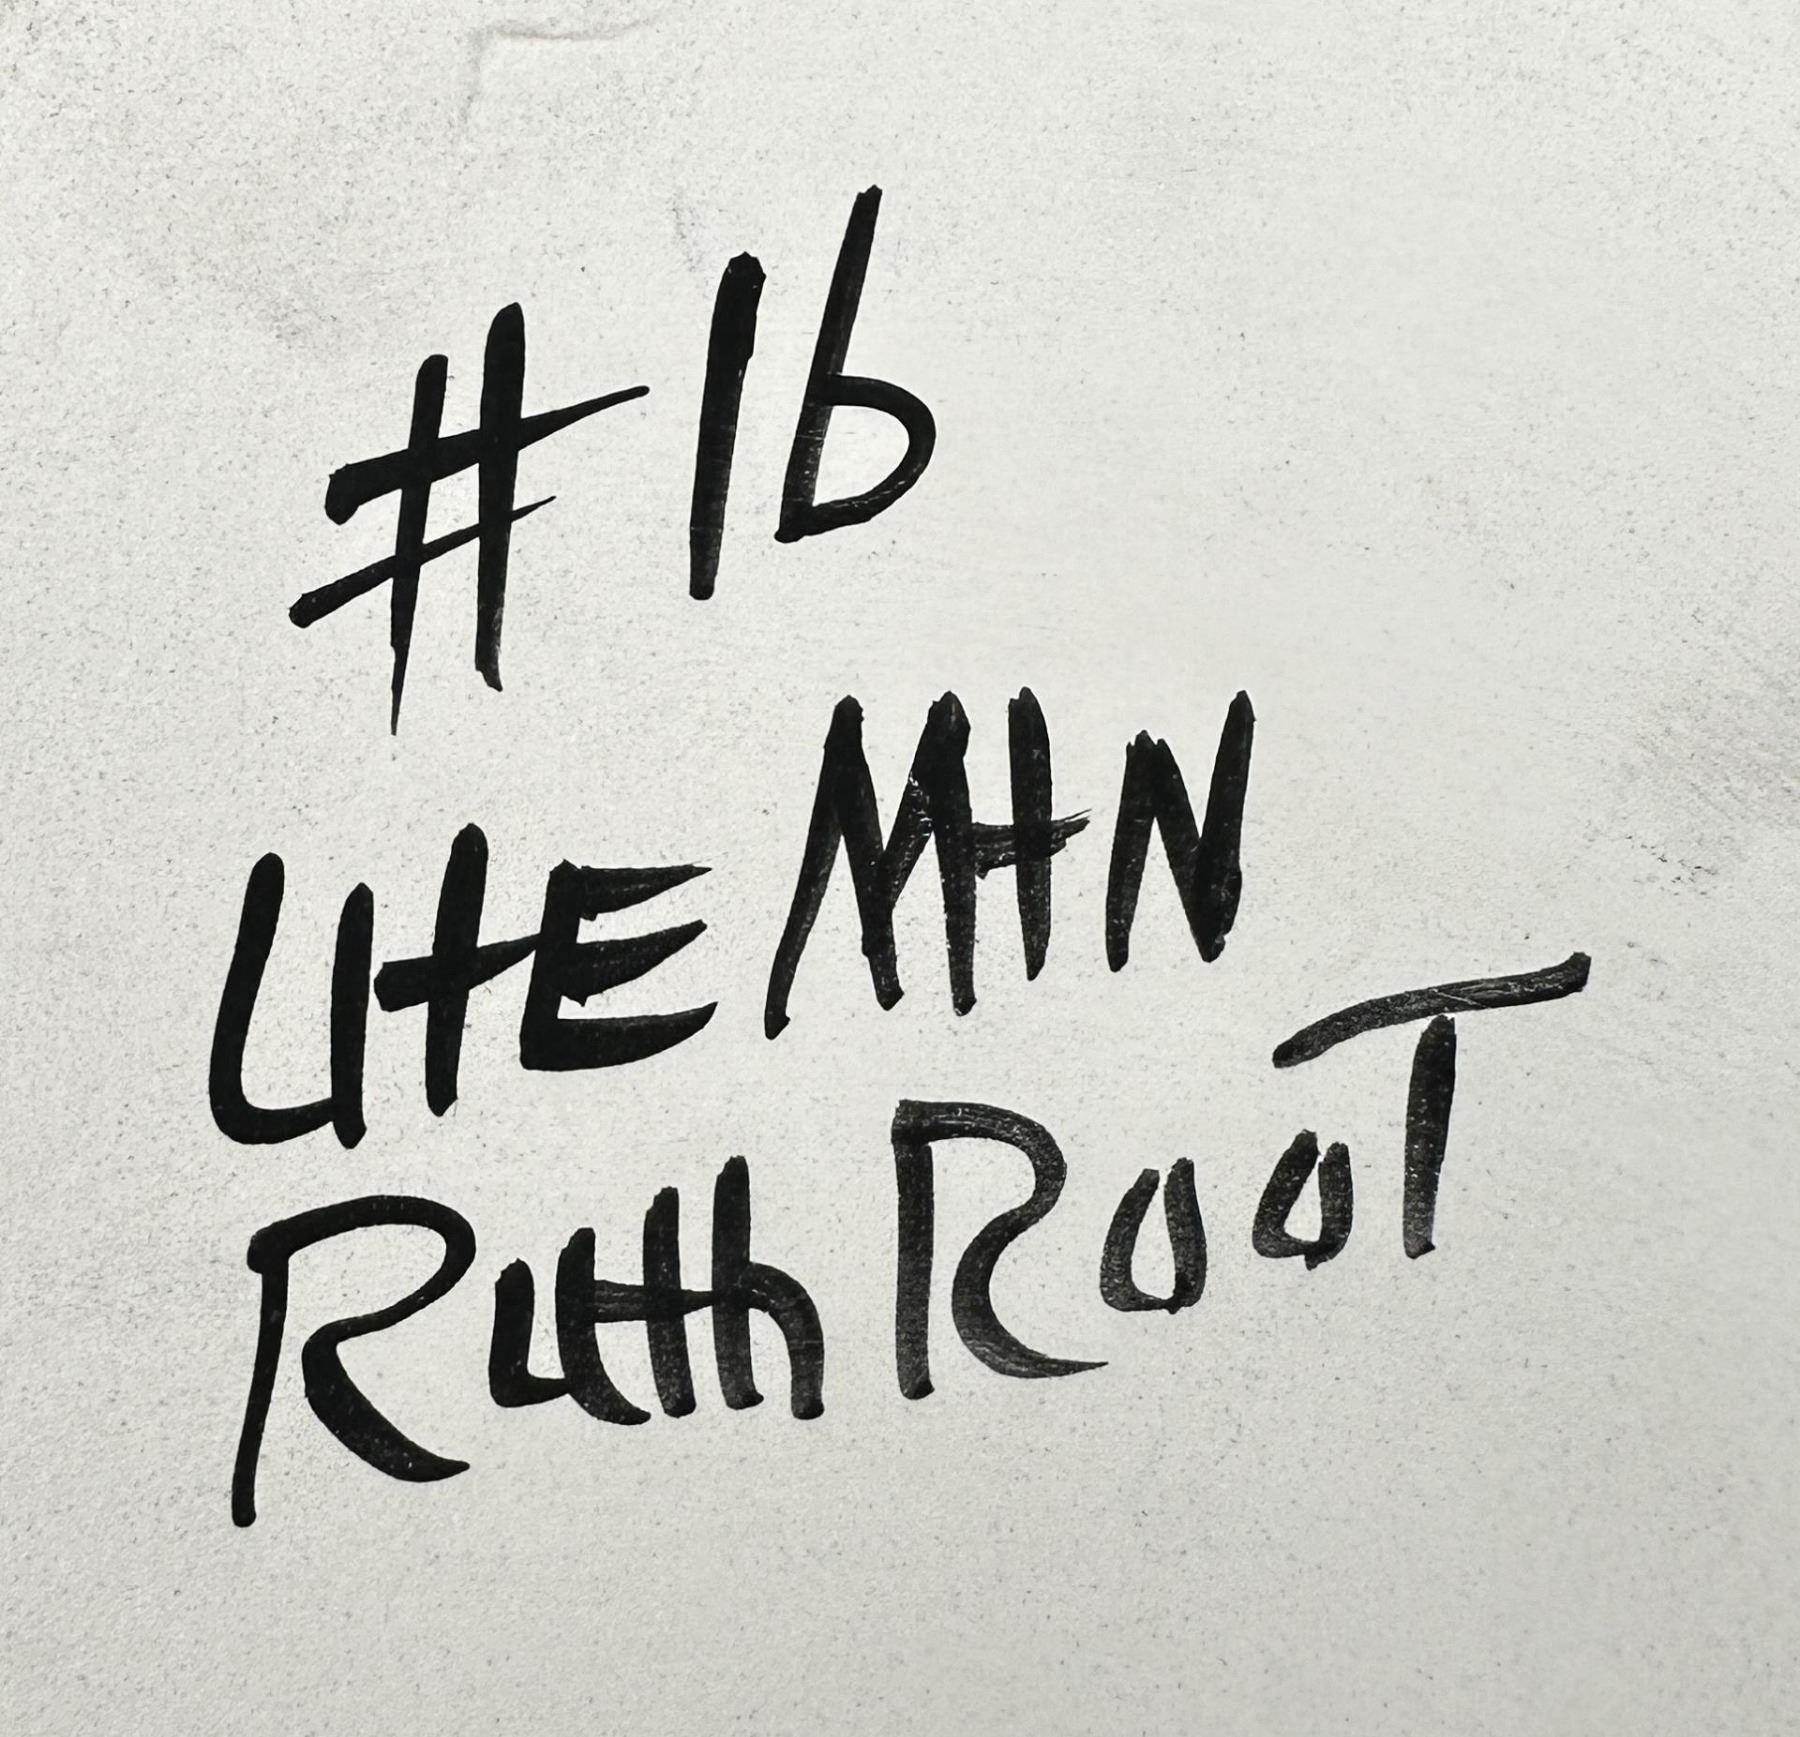 #16
UtE MtN
Ruth RooT